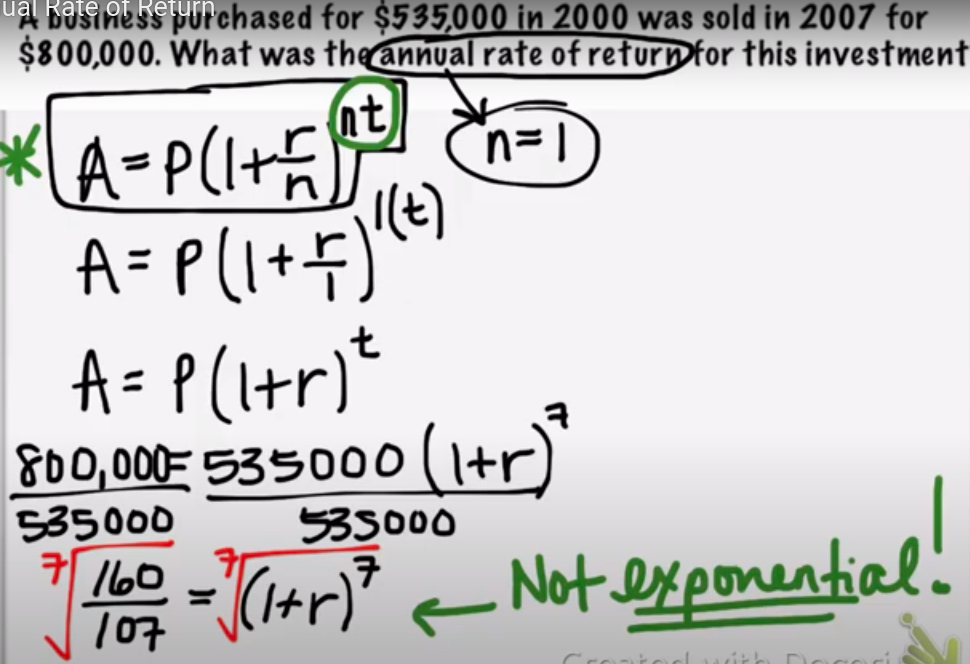 ual Rate of Return
A business purchased for $535,000 in 2000 was sold in 2007 for
$800,000. What was the annual rate of return for this investment
A = P(1+r/n)^nt
n=1
A = P(1+r/1)^1(t)
A = P(1+r)^t
800,000 = 535000 (1+r)^7
535000 535000
7√160/107 = 7√(1+r)^7
← Not exponential!
Created with